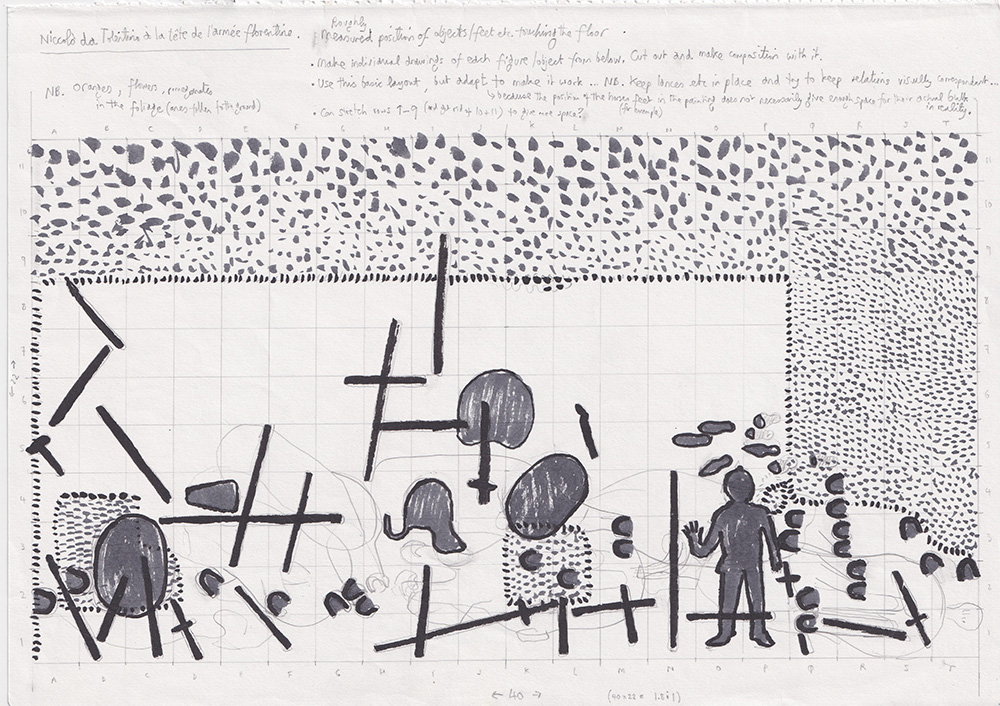 Niccolò da Tolentino à la tête de l'armée florentine.
Roughly
Measured position of objects/feet etc. touching the floor.
• Make individual drawings of each figure/object from below. Cut out and make composition with it.
• Use this basic layout, but adapt to make it work... NB. Keep lances etc in place and try to keep relations visually correspondent...
because the position of the horses feet in the painting does not necessarily give enough space for their actual bulk
in reality.
(for example)
• Can stretch rows 7-9 (and get rid of 10+11) to give more space?
NB. Oranges, flowers, pomegranates
in the foliage (ones fallen to the ground)
A B C D E F G H I J K L M N O P Q R S T
11 10 9 8 7 6 5 4 3 2 1
11 10 9 8 7 6 5 4 3 2 1
← 22 →
A B C D E F G H I J K L M N O P Q R S T
← 40 →
(40×22 = 1.8:1)